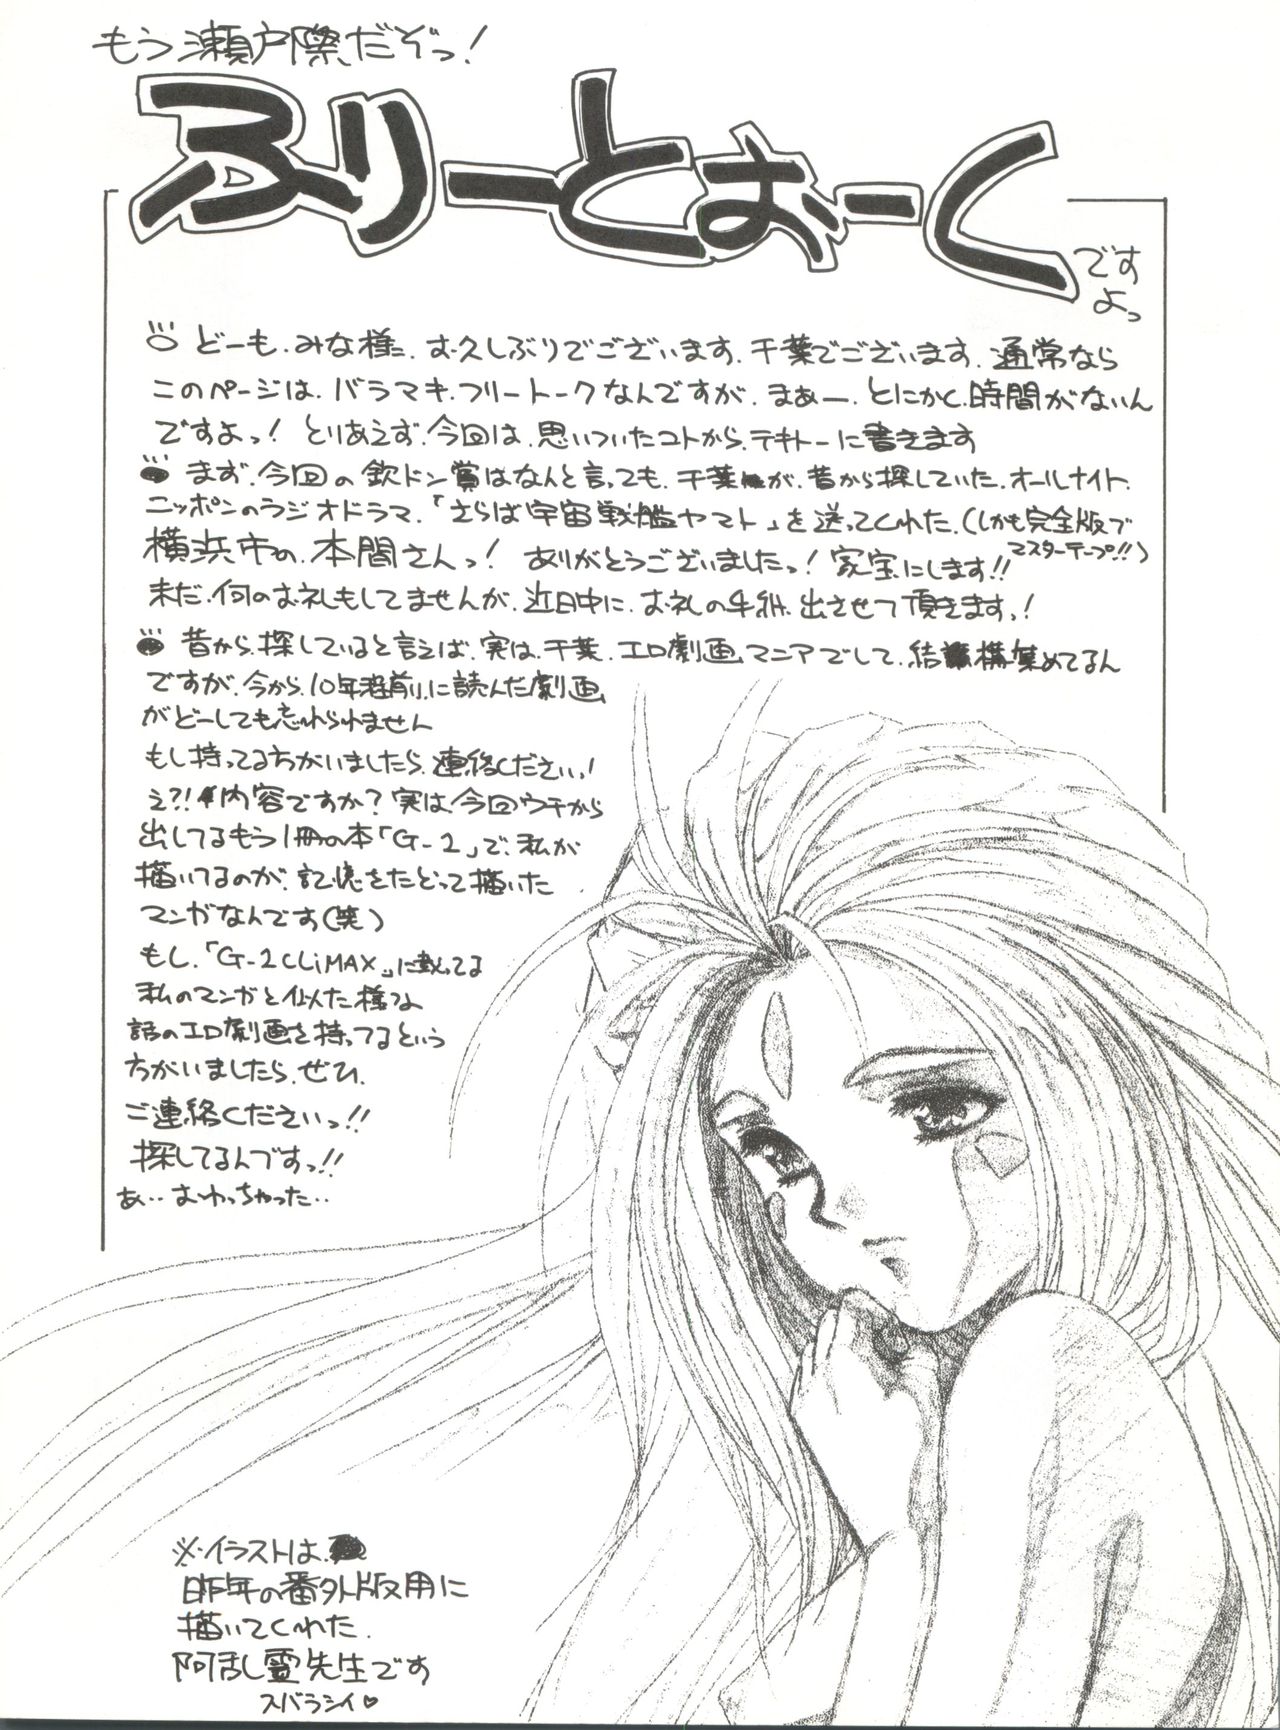 もう瀬戸際だぞっ!
ふりーとおーく
ですよっ
○どーも、みな様、お久しぶりでございます、千葉でございます、通常なら
このページは、バラマキ、フリートークなんですが、まぁー、とにかく、時間がないん
ですよっ! とりあえず、今回は、思いついたコトから、テキトーに書きます
●まず、今回の欽ドン賞はなんと言っても、千葉が、昔から探していた、オールナイト、
ニッポンのラジオドラマ、「さらば宇宙戦艦ヤマト」を送ってくれた、(しかも完全版で
マスターテープ!!)
横浜市の、本間さんっ! ありがとうございましたっ! 家宝にします!!
未だ、何のお礼もしてませんが、近日中に、お礼の手紙、出させて頂きますっ!
●昔から、探していると言えば、実は、千葉、エロ劇画、マニアでして、結構集めてるん
ですが、今から、10年程前に読んだ劇画
がどーしても忘れられません
もし持ってる方がいましたら、連絡くださいっ!
え?! 内容ですか? 実は、今回ウチから
出してるもう1冊の本「G-2」で、私が
描いてるのが、記憶をたどって描いた
マンガなんです(笑)
もし、「G-2CLiMAX」に載ってる
私のマンガと似た様な
話のエロ劇画を持ってるという
方がいましたら、ぜひ、
ご連絡くださいっ!!
探してるんですっ!!
あ‥おわっちゃった‥
※イラストは、
昨年の番外版用に
描いてくれた、
阿乱霊先生です
スバラシイ♡